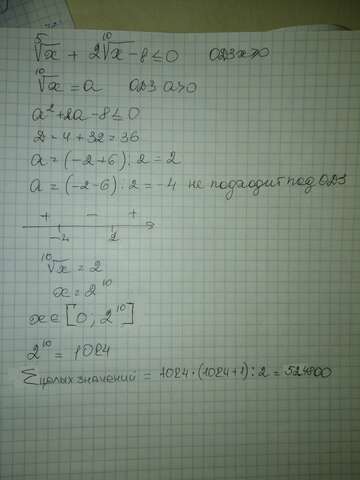 ⁵√x + 2 ¹⁰√x - 8 ≤ 0 ОДЗ x≥0
¹⁰√x = a ОДЗ a≥0
a² + 2a - 8 ≤ 0
D = 4 + 32 = 36
a = (-2+6) : 2 = 2
a = (-2-6) : 2 = -4 не подходит под ОДЗ
+ - +
-4 2
¹⁰√x = 2
x = 2¹⁰
x ∈ [0, 2¹⁰]
2¹⁰ = 1024
Σ целых значений = 1024 · (1024+1) : 2 = 524800